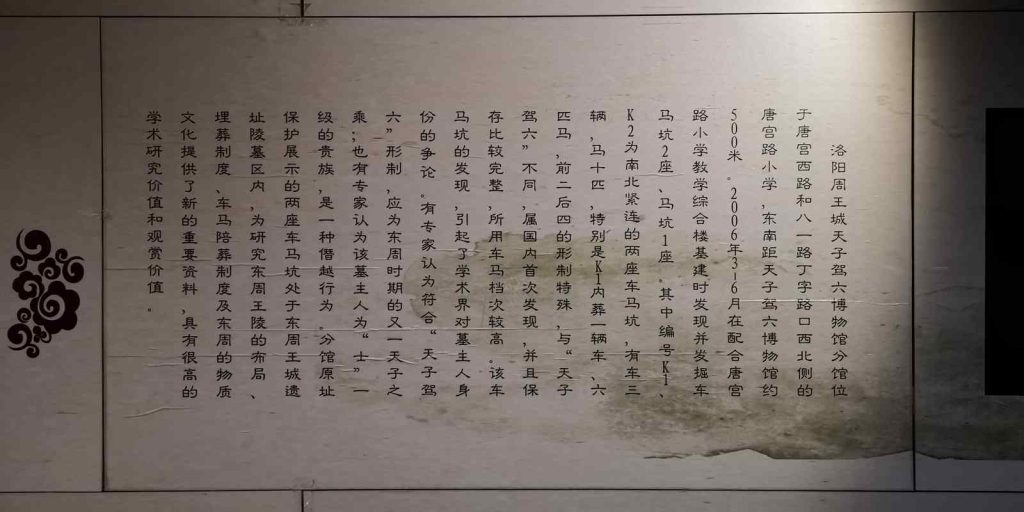 洛阳周王城天子驾六博物馆分馆位
于唐宫西路和八一路丁字路口西北侧的
唐宫路小学，东南距天子驾六博物馆约
500米。2006年3-6月在配合唐宫
路小学教学综合楼基建时发现并发掘车
马坑2座、马坑1座。其中编号K1、
K2为南北紧连的两座车马坑，有车三
辆，马十匹，特别是K1内葬一辆车、六
匹马，前二后四的形制特殊，与“天子
驾六”不同，属国内首次发现，并且保
存比较完整，所用车马档次较高。该车
马坑的发现，引起了学术界对墓主人身
份的争论。有专家认为符合“天子驾
六”形制，应为东周时期的又一天子之
乘；也有专家认为该墓主人为“士”一
级的贵族，是一种僭越行为。分馆原址
保护展示的两座车马坑处于东周王城遗
址陵墓区内，为研究东周王陵的布局、
埋葬制度、车马陪葬制度及东周的物质
文化提供了新的重要资料，具有很高的
学术研究价值和观赏价值。